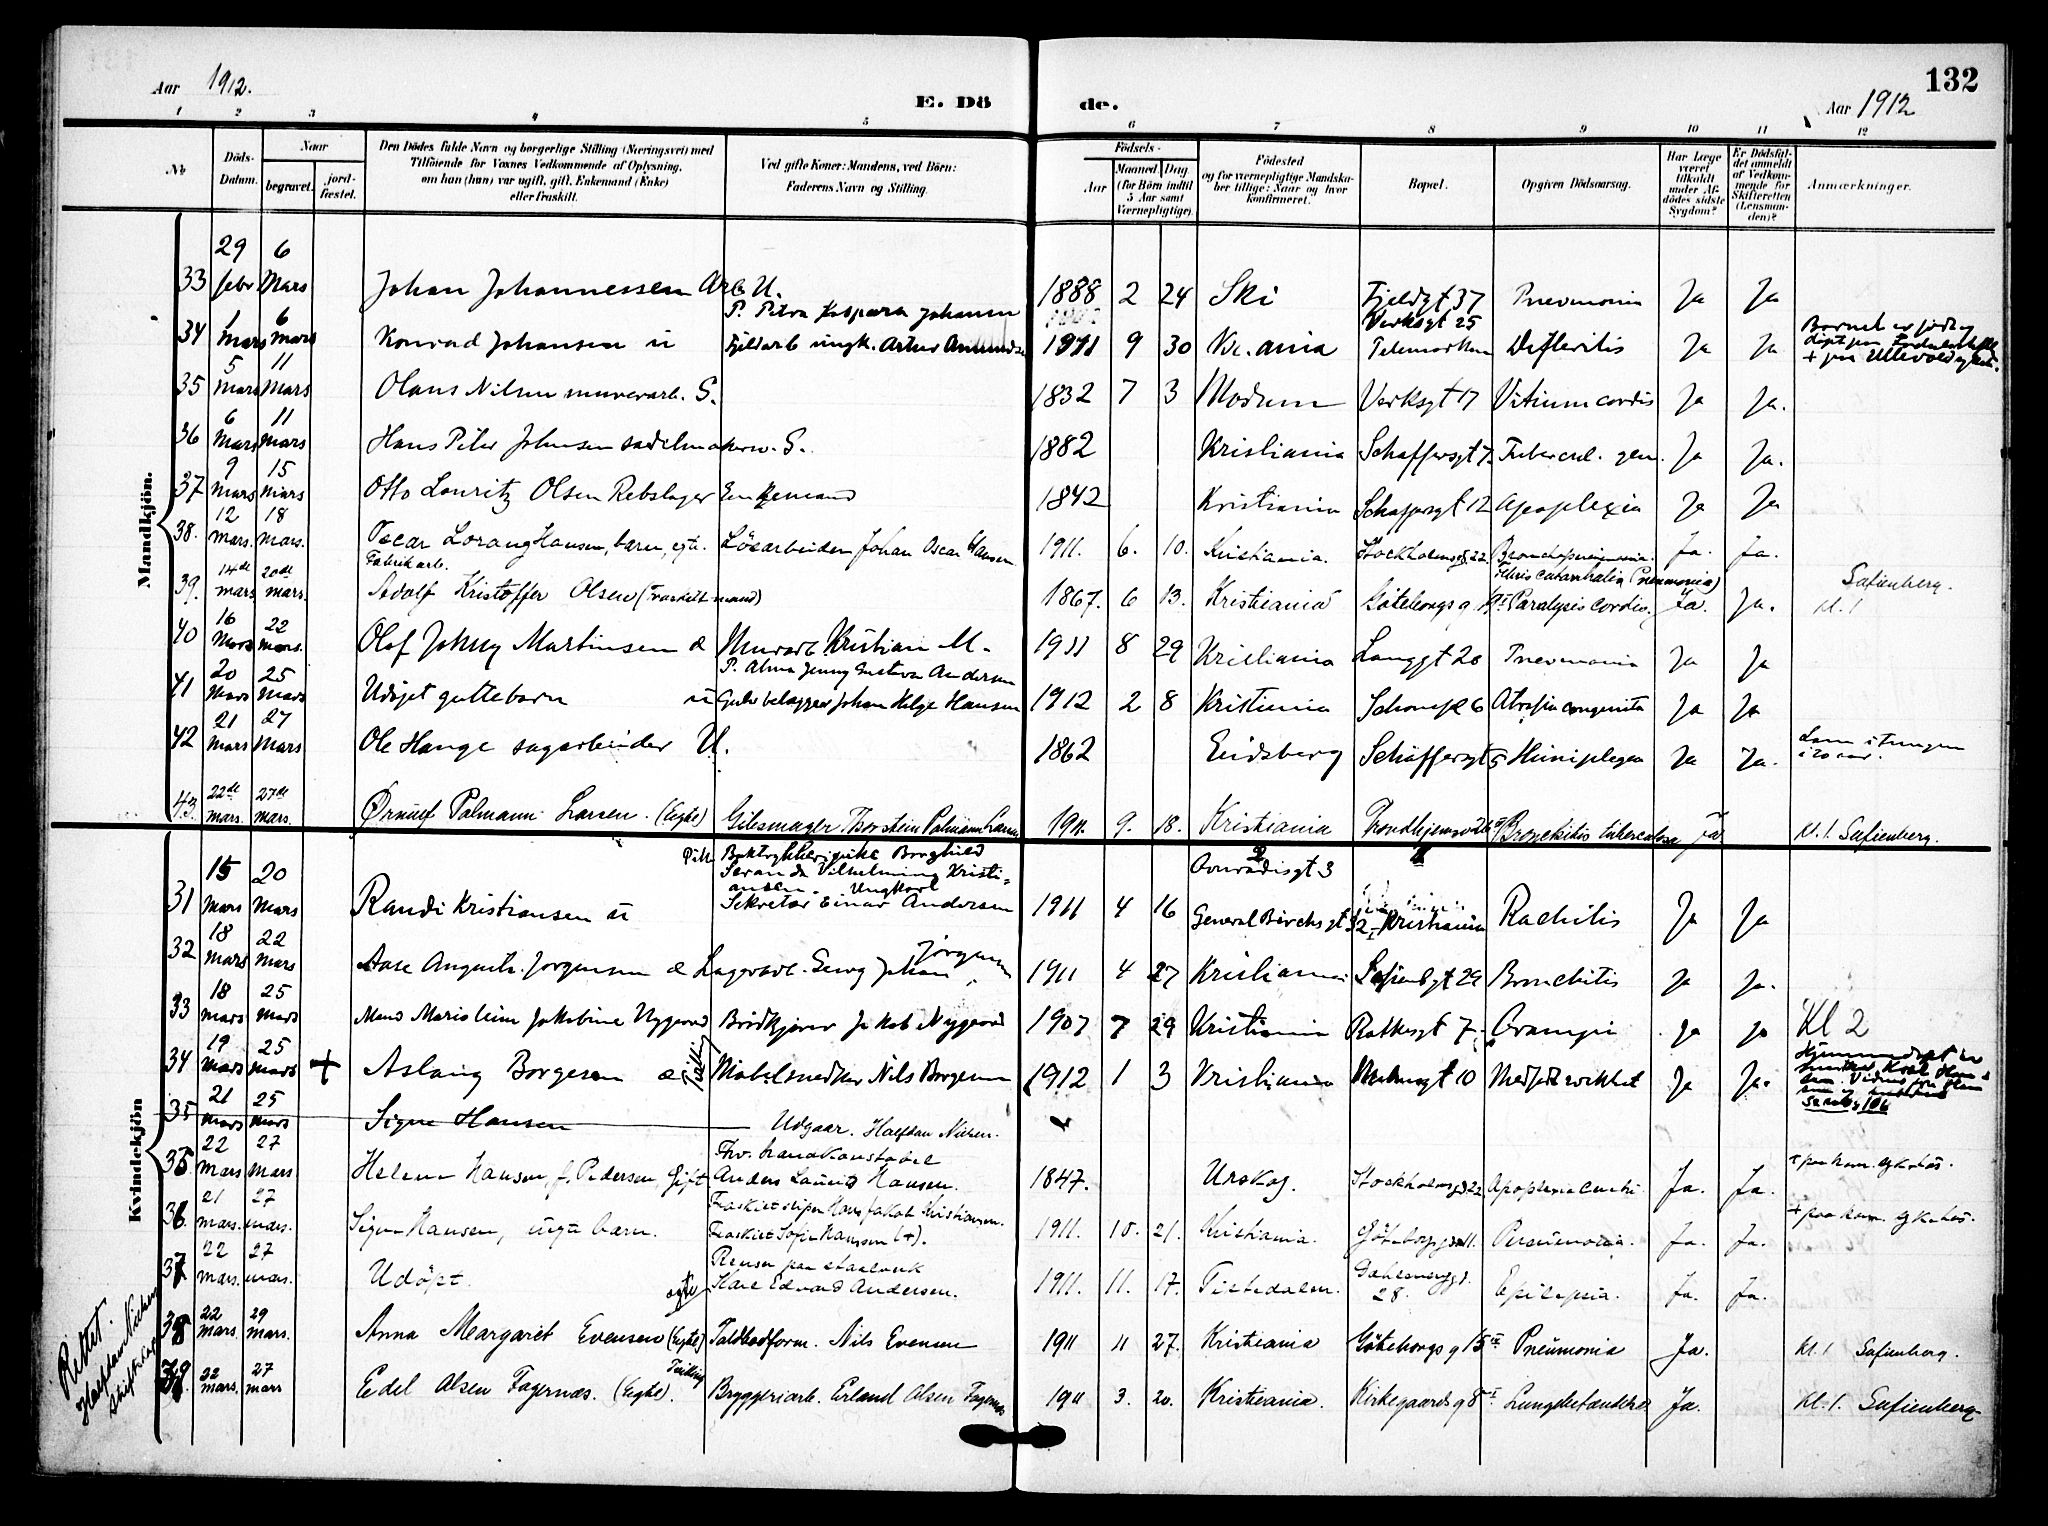 Aar 1912.
E. Dö
de.
132
Aar 1912
1 2 3 4 5 6 7 8 9 10 11 12
No
Döds-Datum.
Naar
begravet.
jord-fæstet.
Den Dödes fulde Navn og borgerlige Stilling (Næringsvei) med
Tilföiende for Voxnes Vedkommende af Oplysning,
om han (hun) var ugift, gift, Enkemand (Enke)
eller fraskilt.
Ved gifte Koner: Mandens, ved Börn:
Faderens Navn og Stilling.
Födsels-
Aar
Maaned Dag
(for Börn indtil
5 Aar samt
Værnepligtige).
Födested
og for værnepligtige Mandska-
ber tillige: Naar og hvor
konfirmeret.
Bopæl.
Opgiven Dödsaarsag.
Har Læge
været
tilkaldt
under Af-
dödes sidste
Sygdom?
Er Dödsfal-
det anmeldt
af Vedkom-
mende for
Skifteretten
(Lensman-
den)?
Anmærkninger.
Mandkjön.
33 29 febr 6 Mars Johan Johannessen Arb U. 1888 2 24 Ski Fjeldgt 37 Pnevmonia Ja Ja
34 1 Mars 6 Mars Konrad Johansen u P. Petra Kaspara Johansen
Fjeldarb ungk. Artur 1911 9 30 Kr.ania Verksgt 25 Difteritis Ja Ja
35 5 Mars 11 Mars Olaus Nilsen murerarb. G. 1832 7 3 Modum Verksgt 17 Vitium cordis Ja Ja.
36 6 Mars 11 Mars Hans Peter Johnsen sadelmakersv. G. 1882 Kristiania Schaffersgt 7. Tubercul. gen. Ja Ja.
37 9 Mars 15 Mars Otto Lauritz Olsen Rebslager Enkemand 1842 Kristiania Schaffersgt 12 Apoplexia Ja Ja
38. 12 mars. 18 mars. Oscar Lorang Hansen, barn, egte. Lösarbeider Johan Oscar Hansen 1911. 6. 10. Kristiania. Stockholmsgd. 22. Bronchopneumonia. Ja. Ja.
39. 14de mars 20de mars. Fabrikarb.
Adolf Kristoffer Olsen (Fraskilt mand) 1867. 6 13. Kristiania Göteborgs g. Febris catarrhalia (Pneumonia)
Paralysis cordis. Ja. Ja. Kl. 1 Sofienberg.
40 16 Mars 22 mars. Olaf Johny Martinsen e Murarb Kristian M. 1911 8 29 Kristiania Langgt 20 Pnevmonia Ja Ja
41 20 Mars 25 Mars Udöpt guttebarn u P. Alma Jenny Gustava Andersen
Gulvbelægger Johan Helge Hansen 1912 2 8 Kristiania 6 Atrofia congenita Ja Ja
42 21 Mars 27 Mars Ole Hauge sagarbeider U. 1862 Eidsberg Schäffersgt 5 Hemiplegea Ja Ja. Lam i tungen
i 20 aar.
43. 22de mars. 27de mars. Ørnulf Palmann Larsen. (Egte) Gibsmager Thorstein Palmann Larsen 1911. 9. 18. Kristiania Trondhjemsv. Bronchitis tuberculosa Ja Kl. 1. Sofienberg.
Kvindekjön
31 15 Mars 20 Mars Randi Kristiansen u Pike Boktrykkeripike Borghild
Seranda Vilhelmine Kristi=
ansen. Ungkarl
Sekretær Einar Andersen 1911 4 16 General Birchs gt Kristiania Rachitis Ja Ja
32 18 Mars 22 Mars Aase Augusta Jørgensen e Lagerarb. Georg Johan Jørgensen 1911 4 27 Kristiania Sofienbgt 29 Bronchitis Ja Ja.
33 18 Mars 25 Mars Jakobine Nygaard Brödkjörer Jakob Nygaard 1907 7 29 Kristiania Ratkesgt 7. Ja Ja Kl 2
34 19 Mars 25 Mars + Aslaug Borgesen e (Tvilling) Möbelsnedker Nils Borgesen 1912 1 3 Kristiania gt 10 Medf. svakhet Ja Ja.
35 21 Mars 25 Mars Signe Hansen Udgaar. Halfdan Nielsen.
35 22 Mars 27 Mars Helene Hansen, f. Pedersen, Gift Fhv.
Anders Laurits Hansen. 1847. Urskog. Stockholmsgd 22 Apoplexia cerebri. Ja. Ja. + paa kom. sykehus.
36 21 mars. 27 mars. Signe Hansen, uegte barn. Fraskilt sliper Hans Jakob Kristiansen.
Fraskilt Sofie Hansen (+). 1911. 10. 21. Kristiania. Göteborg gd 11. Pneumonia. Ja. Ja. + paa kom. sykehus.
37 22 mars. 27 mars. Udöpt. egte Renser paa staalverk
Karl Edvard Andersen. 1911. 11. 17. Tistedalen. 28. Epilepsia. Ja. Ja.
38 22 mars. 29 mars. Anna Margaret Evensen (Egte) Toldbedform. Nils Evensen 1911 11 27. Kristiania Göteborgs g 15 Pneumonia Ja. Kl. 1 Sofienberg.
39. 22 mars. 27 mars Edel Alsen Fagernæs. (Egte). Tvilling Bryggeriarb. Erland Alsen Fagernæs 1911 3. 20. Kristiania. Kirkegaards g 8 I Lungebetændelse Ja. Kl. 1. Sofienberg
Rettet.
Halfdan Nielsen